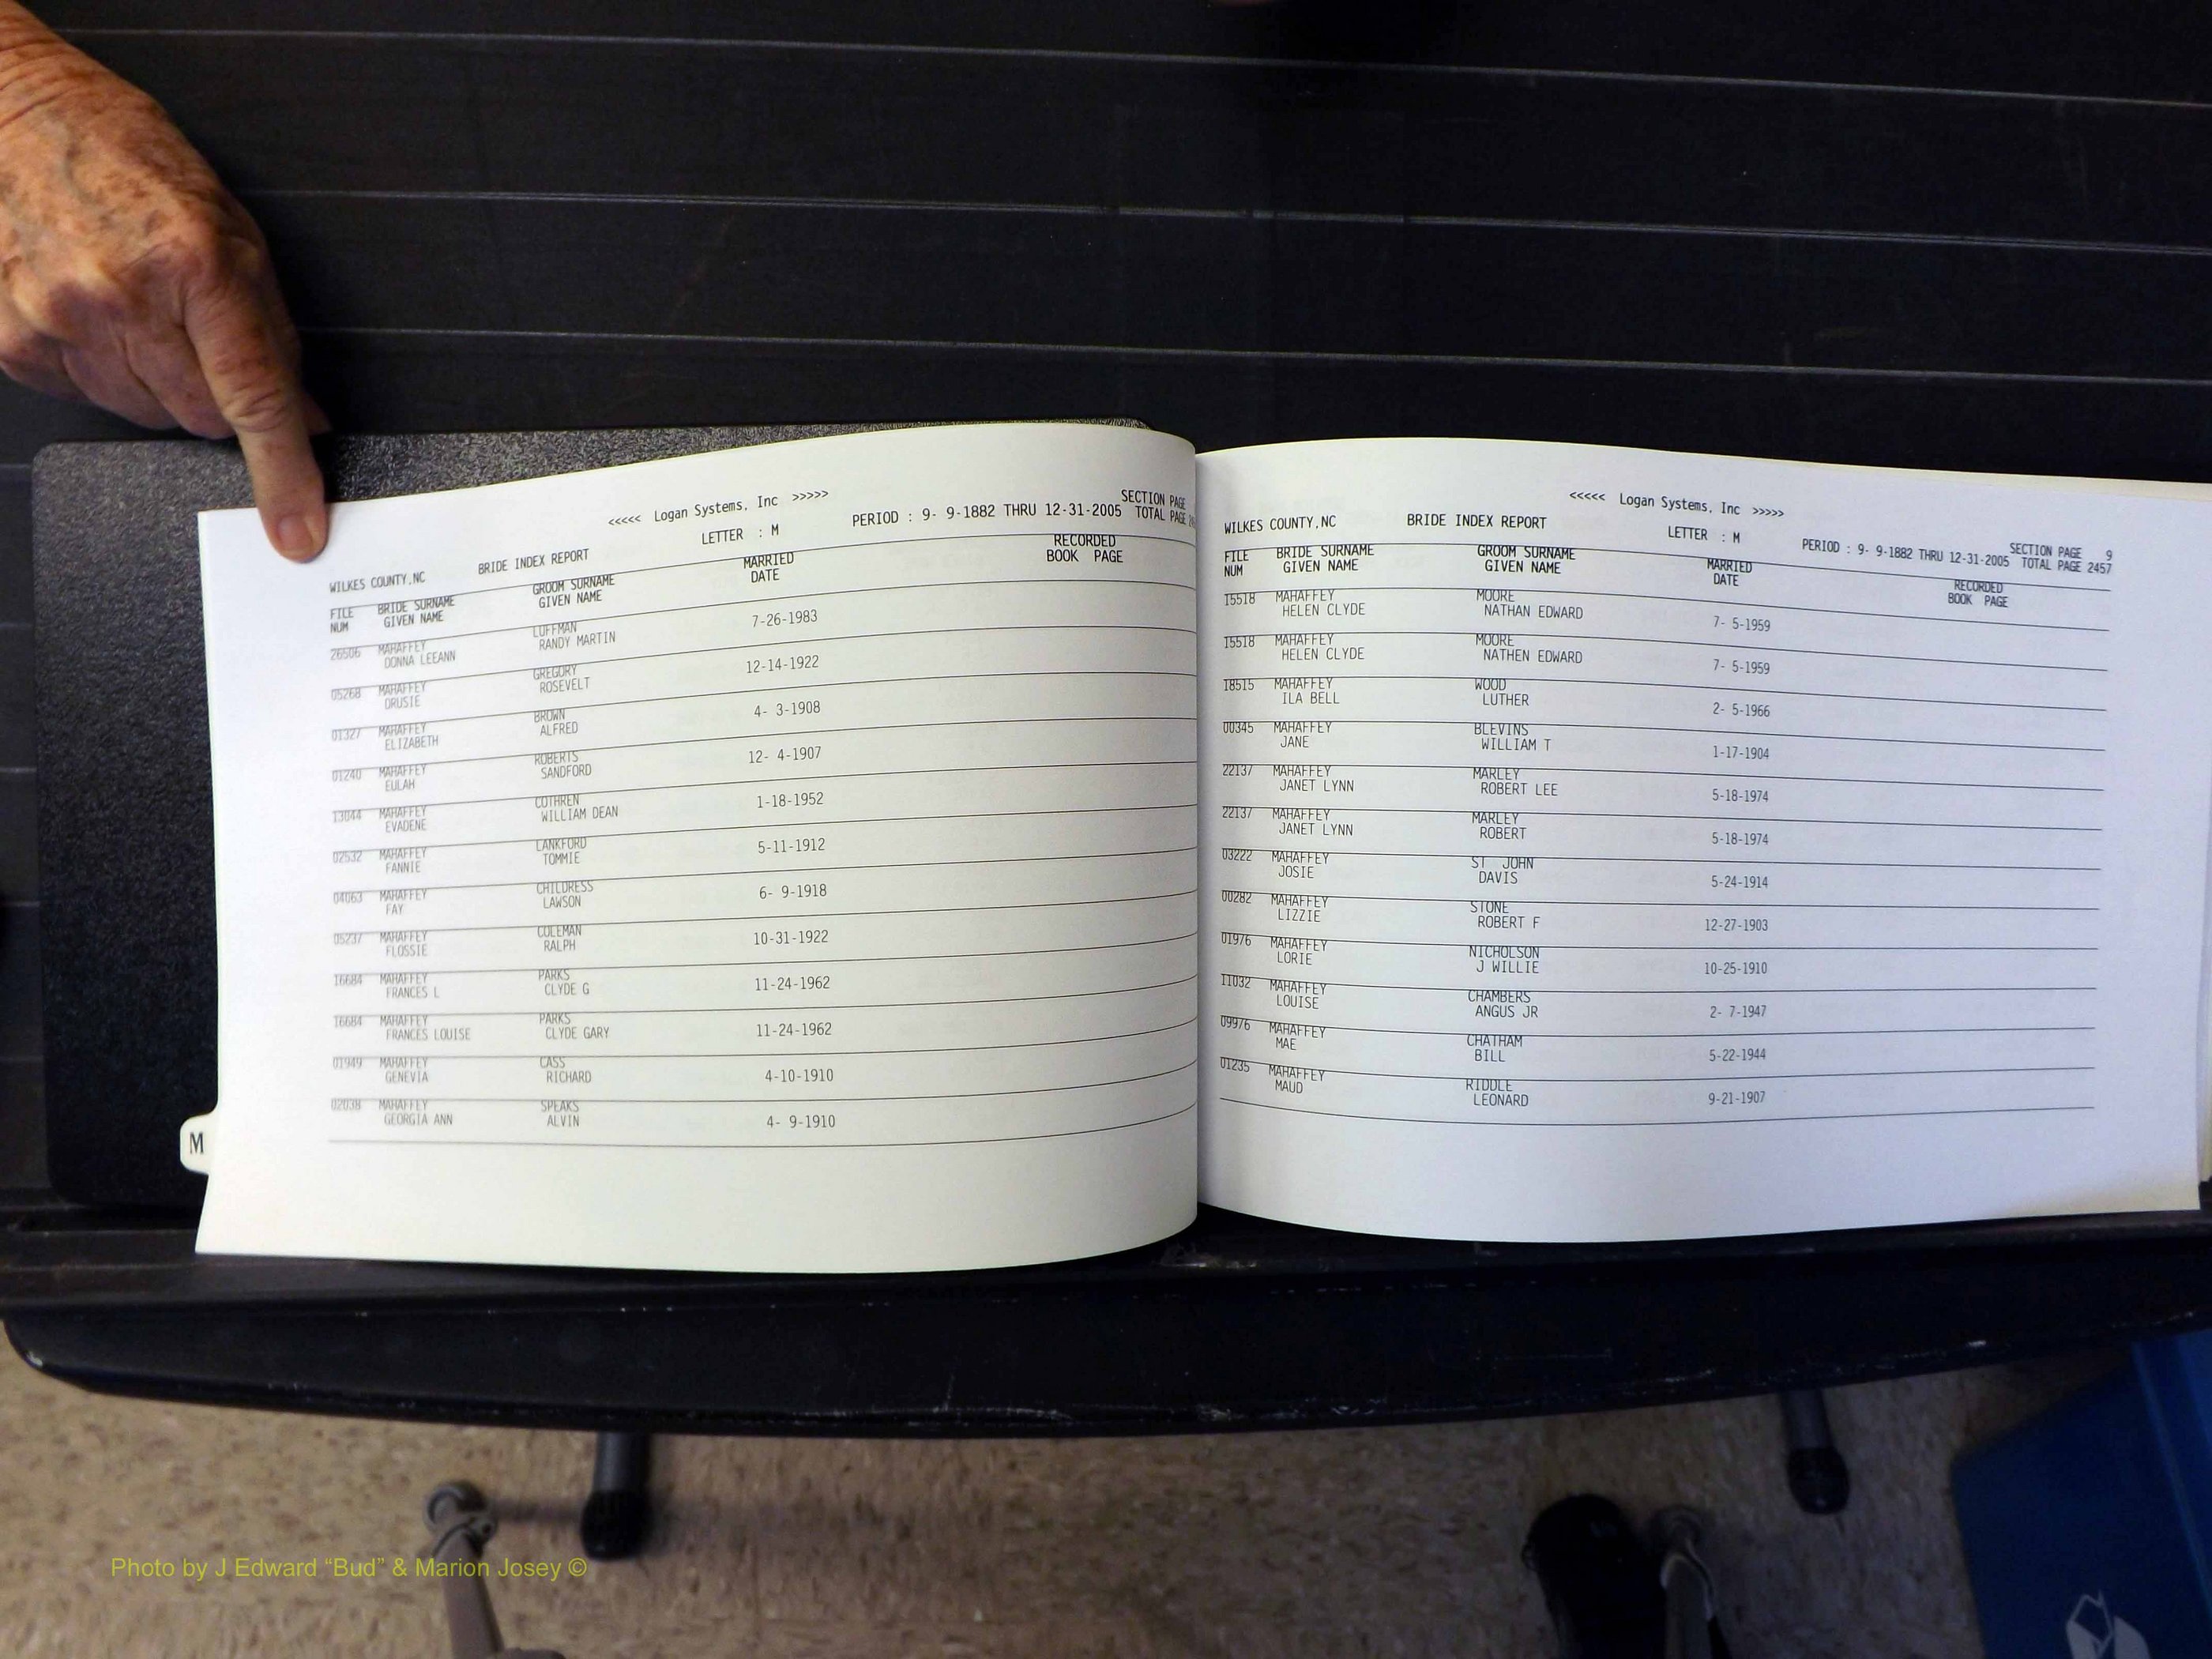 <<<<< Logan Systems, Inc >>>>>
SECTION PAGE
WILKES COUNTY,NC BRIDE INDEX REPORT LETTER : M PERIOD : 9- 9-1882 THRU 12-31-2005 TOTAL PAGE
FILE BRIDE SURNAME GROOM SURNAME MARRIED RECORDED
NUM GIVEN NAME GIVEN NAME DATE BOOK PAGE
26506 MAHAFFEY LUFFMAN 7-26-1983
DONNA LEEANN RANDY MARTIN
05268 MAHAFFEY GREGORY 12-14-1922
DRUSIE ROSEVELT
01327 MAHAFFEY BROWN 4- 3-1908
ELIZABETH ALFRED
01240 MAHAFFEY ROBERTS 12- 4-1907
EULAH SANDFORD
13044 MAHAFFEY COTHREN 1-18-1952
EVADENE WILLIAM DEAN
02532 MAHAFFEY LANKFORD 5-11-1912
FANNIE TOMMIE
04063 MAHAFFEY CHILDRESS 6- 9-1918
FAY LAWSON
05237 MAHAFFEY COLEMAN 10-31-1922
FLOSSIE RALPH
16684 MAHAFFEY PARKS 11-24-1962
FRANCES L CLYDE G
16684 MAHAFFEY PARKS 11-24-1962
FRANCES LOUISE CLYDE GARY
01949 MAHAFFEY CASS 4-10-1910
GENEVIA RICHARD
02038 MAHAFFEY SPEAKS 4- 9-1910
GEORGIA ANN ALVIN
M
<<<<< Logan Systems, Inc >>>>>
SECTION PAGE 9
WILKES COUNTY,NC BRIDE INDEX REPORT LETTER : M PERIOD : 9- 9-1882 THRU 12-31-2005 TOTAL PAGE 2457
FILE BRIDE SURNAME GROOM SURNAME MARRIED RECORDED
NUM GIVEN NAME GIVEN NAME DATE BOOK PAGE
15518 MAHAFFEY MOORE 7- 5-1959
HELEN CLYDE NATHAN EDWARD
15518 MAHAFFEY MOORE 7- 5-1959
HELEN CLYDE NATHEN EDWARD
18515 MAHAFFEY WOOD 2- 5-1966
ILA BELL LUTHER
00345 MAHAFFEY BLEVINS 1-17-1904
JANE WILLIAM T
22137 MAHAFFEY MARLEY 5-18-1974
JANET LYNN ROBERT LEE
22137 MAHAFFEY MARLEY 5-18-1974
JANET LYNN ROBERT
03222 MAHAFFEY ST JOHN 5-24-1914
JOSIE DAVIS
00282 MAHAFFEY STONE 12-27-1903
LIZZIE ROBERT F
01976 MAHAFFEY NICHOLSON 10-25-1910
LORIE J WILLIE
11032 MAHAFFEY CHAMBERS 2- 7-1947
LOUISE ANGUS JR
09976 MAHAFFEY CHATHAM 5-22-1944
MAE BILL
01235 MAHAFFEY RIDDLE 9-21-1907
MAUD LEONARD
Photo by J Edward “Bud” & Marion Josey ©